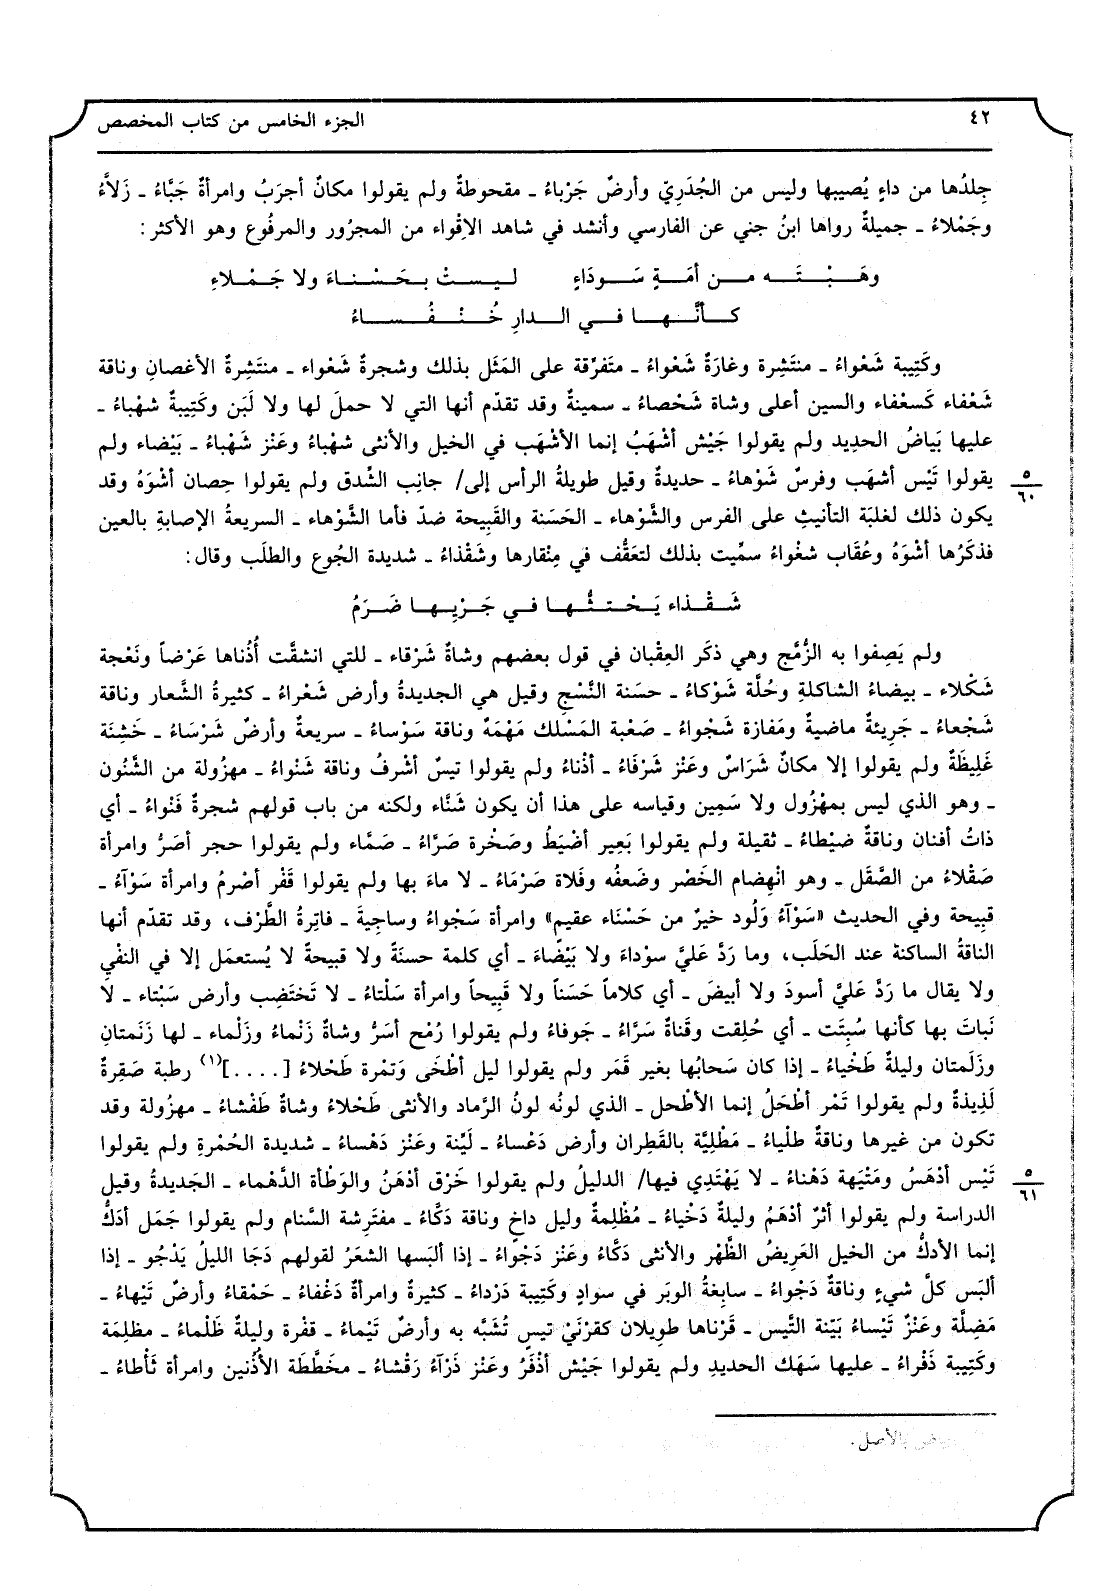 ٤٢
الجزء الخامس من كتاب المخصص
جِلدُها من داءٍ يُصيبها وليس من الجُدَرِيّ وأرضٌ جَرْباءُ ـ مقحوطةٌ ولم يقولوا مكانٌ أجرَبُ وامرأةٌ جَبَّاءُ ـ زَلاَّءُ
وجَمْلاءُ ـ جميلةٌ رواها ابنُ جني عن الفارسي وأنشد في شاهد الاِقْواء من المجرُور والمرفُوع وهو الأكثر:
وهَبْتَه من أمَةٍ سَودَاءٍ ليستْ بحَسْناءَ ولا جَمْلاءِ
كأنَّها في الدارِ خُنْفُساءُ
وكَتِيبة شَعْواءُ ـ منتَشِرة وغارَةٌ شَعْواءُ ـ متَفرِّقة على المَثَل بذلك وشجرةٌ شَعْواء ـ منتَشِرةُ الأغصانِ وناقة
شَعْفاء كَسعْفاء والسين أعلى وشاة شَحْصاءُ ـ سمينةٌ وقد تقدّم أنها التي لا حملَ لها ولا لَبَن وكَتِيبةٌ شهْباءُ ـ
عليها بَياضُ الحديد ولم يقولوا جَيْش أشْهَبُ إنما الأشْهَب في الخيل والأنثى شهْباءُ وعَنْز شَهْباءُ ـ بَيْضاء ولم
يقولوا تَيْس أشهَب وفرسٌ شَوْهاءُ ـ حديدةٌ وقيل طويلةُ الرأس إلى/ جانِب الشِّدق ولم يقولوا حِصان أشْوَهُ وقد
٥
٦٠
يكون ذلك لغلبَة التأنيثِ على الفرس والشَّوْهاء ـ الحَسَنة والقَبِيحة ضدّ فأما الشَّوْهاء ـ السريعةُ الإصابةِ بالعين
فذكَرُها أشْوَهُ وعُقَاب شغْواءُ سمِّيت بذلك لتعَقُّف في مِنْقارها وشَقْذاءُ ـ شديدة الجُوع والطلَب وقال:
شَقْذاء يَحْتثُّها في جَرْيِها ضَرَمُ
ولم يَصِفوا به الزُّمَّج وهي ذكَر العِقْبان في قول بعضهم وشاةٌ شَرْقاء ـ للتي انشقَّت أُذُناها عَرْضاً ونَعْجة
شَكْلاء ـ بيضاءُ الشاكلةِ وحُلَّة شَوْكاءُ ـ حسَنة النَّسْجِ وقيل هي الجديدةُ وأرض شَعْراءُ ـ كثيرةُ الشَّعار وناقة
شَجْعاءُ ـ جَرِيئةٌ ماضيةٌ ومَفازة شَجْواءُ ـ صَعْبة المَسْلك مَهْمَهٌ وناقة سَوْساءُ ـ سريعةٌ وأرضٌ شَرْسَاءُ ـ خَشِنَة
غَلِيظَةٌ ولم يقولوا إلا مكانٌ شَرَاسٌ وعَنْز شَرْفَاءُ ـ أذْناءُ ولم يقولوا تيسٌ أشْرفُ وناقة شَنْواءُ ـ مهزولة من الشَّنُون
ـ وهو الذي ليس بمهْزُول ولا سَمِين وقياسه على هذا أن يكون شَنَّاء ولكنه من باب قولهم شجرة فَنْواءُ ـ أي
ذاتُ أفنان وناقةٌ ضيْطاءُ ـ ثقيلة ولم يقولوا بَعِير أضْيَطُ وصَخْرة صَرَّاءُ ـ صَمَّاء ولم يقولوا حجر أصَرُّ وامرأة
صَقْلاءُ من الصَّقَل ـ وهو انْهِضام الخَصْر وضَعفُه وفَلاة صَرْمَاءُ ـ لا ماءَ بها ولم يقولوا قَفْر أصْرمُ وامرأة سَوْآءُ ـ
قبيحة وفي الحديث «سَوْآءُ وَلُود خيرٌ من حَسْنَاء عقيم» وامرأة سَجْواءُ وساجِيةَ ـ فاتِرةُ الطَّرْف، وقد تقدّم أنها
الناقةُ الساكنة عند الحَلَب، وما رَدَّ عَليَّ سوْداءَ ولا بَيْضَاءَ ـ أي كلمة حسنَةً ولا قبيحةً لا يُستعمَل إلا في النفْي
ولا يقال ما رَدَّ عَليَّ أسودَ ولا أبيضَ ـ أي كلاماً حَسَناً ولا قَبِيحاً وامرأة سَلْتاءُ ـ لا تَختَضِب وأرض سَبْتاء ـ لا
نَباتَ بها كأنها سُبِتَت ـ أي حُلِقت وقَناةٌ سَرَّاءُ ـ جَوفاءُ ولم يقولوا رُمْح أسَرُّ وشاةٌ زَنْماءُ وزَلْماء ـ لها زَنَمتانِ
وزَلَمتان وليلةٌ طَخْياءُ ـ إذا كان سَحابُها بغير قَمَر ولم يقولوا ليل أطْخَى وَتمْرة طَحْلاءُ [....](١) رطبة صَقِرةٌ
لَذِيذةٌ ولم يقولوا تَمْر أطْحَلُ إنما الأطْحل ـ الذي لونُه لونُ الرَّماد والأنثى طَحْلاءُ وشاةٌ طَفْشاءُ ـ مهزولة وقد
تكون من غيرها وناقةٌ طلْياءُ ـ مَطْلِيَّة بالقَطِران وأرض دَعْساءُ ـ لَيِّنة وعَنْز دَهْساءُ ـ شديدة الحُمْرةِ ولم يقولوا
تَيْس أدْهَسُ ومَتْيَهة دَهْناءُ ـ لا يَهْتَدِي فيها/ الدليلُ ولم يقولوا خَرْق أدْهَنُ والوَطْأة الدَّهْماء ـ الجَديدةُ وقيل
٥
٦١
الدراسة ولم يقولوا أثرٌ أدْهَمُ وليلةٌ دَخْياءُ ـ مُظْلِمةٌ وليل داخٍ وناقة دَكَّاءُ ـ مفتَرِشة السَّنام ولم يقولوا جَمَل أدَكُّ
إنما الأدكُّ من الخيل العَرِيضُ الظَّهْر والأنثى دَكَّاءُ وعَنْز دَجْواءُ ـ إذا ألبَسها الشعَرُ لقولهم دَجَا الليلُ يَدْجُو ـ إذا
ألبَس كلَّ شيءٍ وناقةٌ دَجْواءُ ـ سابِغةُ الوبَر في سوادٍ وكَتِيبة دَرْداءُ ـ كثيرةٌ وامرأةٌ دَغْفاءُ ـ حَمْقاءُ وأرضٌ تَيْهاءُ ـ
مَضِلَّة وعَنْزٌ تَيْساءُ بَيّنة التَّيس ـ قَرْناها طويلان كقرْنَيْ تيسٍ تُشَبَّه به وأرضٌ تَيْماءُ ـ قفْرة وليلةٌ ظَلْماءُ ـ مظلِمَة
وكَتِيبة ذَفْراءُ ـ عليها سَهَك الحديدِ ولم يقولوا جَيْش أذْفَرُ وعَنْز ذَرْآءُ رَقْشاءُ ـ مخَطَّطَة الأُذُنين وامرأة ثَأْطاءُ ـ
بالأصل.